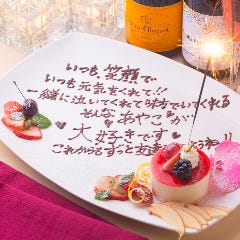 いつも、笑顔で
いつも元気をくれて!!
一緒に泣いてくれて味方でいてくれる
そんな あやこ が
大好きです
これからもずっと